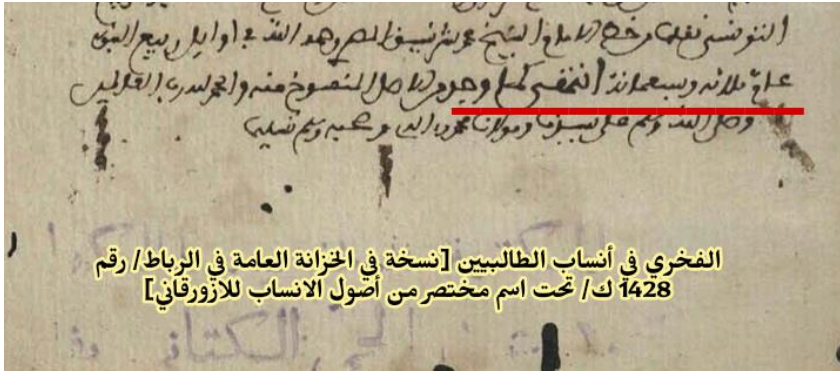 التونسي نقلها من خط الامام الشيخ في اوايل ربيع النبوي
عام ثلاثة وسبعمائة انتهى كما وجد من الاصل المنسوخ منه والحمد لله رب العالمين
وصلى الله وسلم على سيدنا ومولانا محمد واله وصحبه وسلم تسليما
الفخري في أنساب الطالبيين [نسخة في الخزانة العامة في الرباط/ رقم
1428 ك/ تحت اسم مختصر من أصول الانساب للازورقاني]
الكتاني